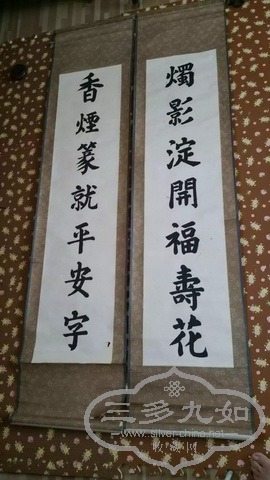 燭影淀開福壽花
香煙篆就平安字
三多九如
www.silver-china.net
收藏网